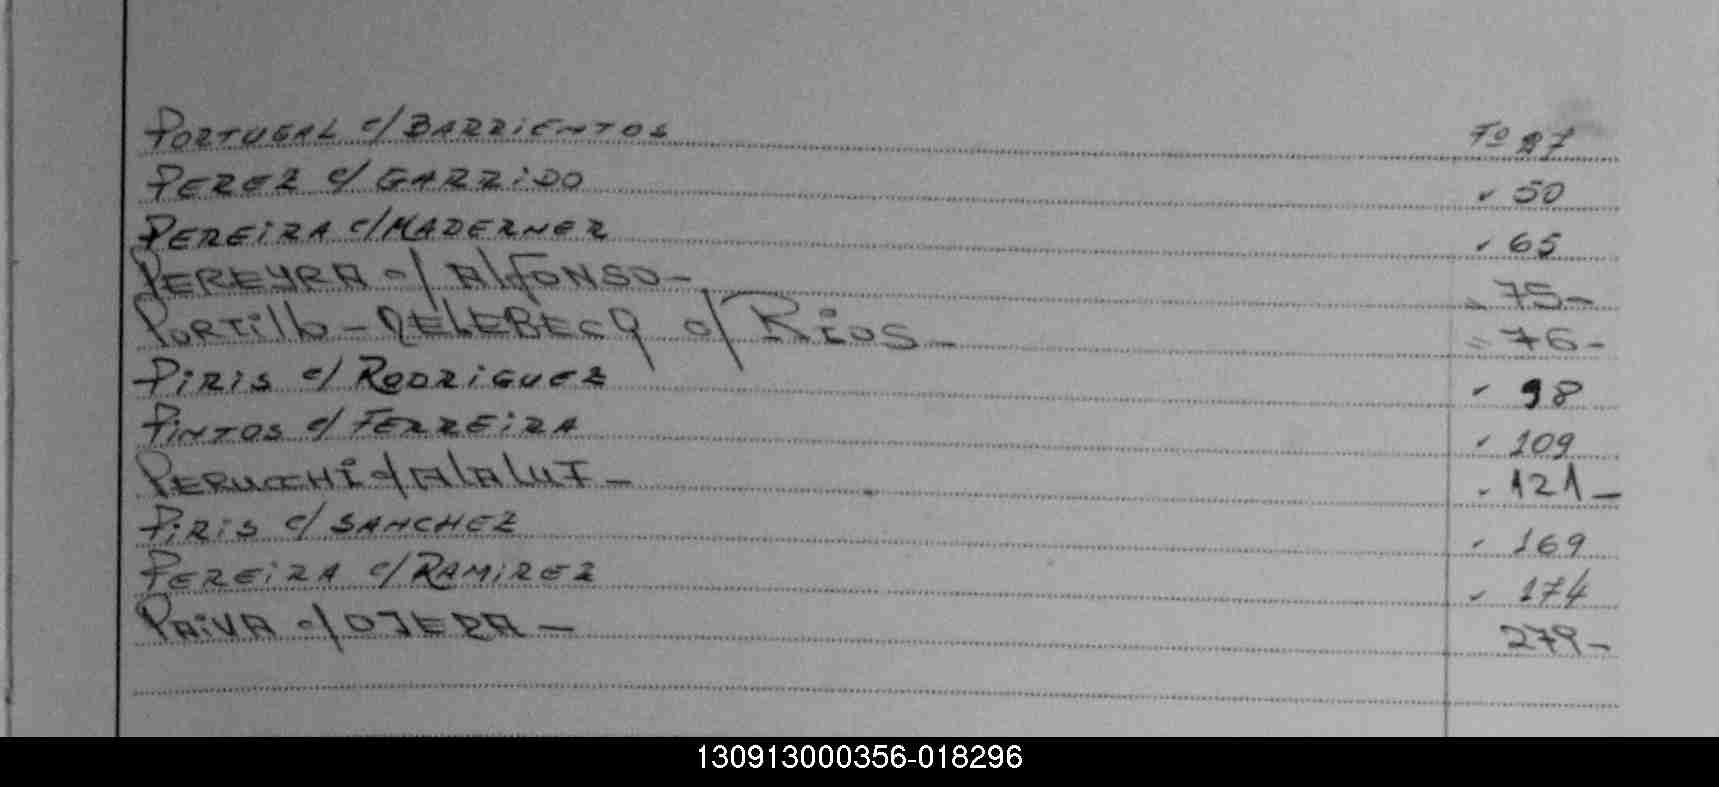 PORTUGAL c/ BARRIENTOS Fo 27
PEREZ c/ GARRIDO " 50
PEREIRA c/ MADERNER " 65
PEREYRA c/ AlFONSO - " 75 -
PORTillo - c/ RiOS - " 76 -
PIRIS c/ RODRIGUEZ " 98
PINTOS c/ FERREIRA " 109
PERUCCHI c/ AlAluI - " 121 -
PIRIS c/ SANCHEZ " 169
PEREIRA c/ RAMIREZ " 174
PAIVA c/ OJEDA - 279 -
130913000356-018296